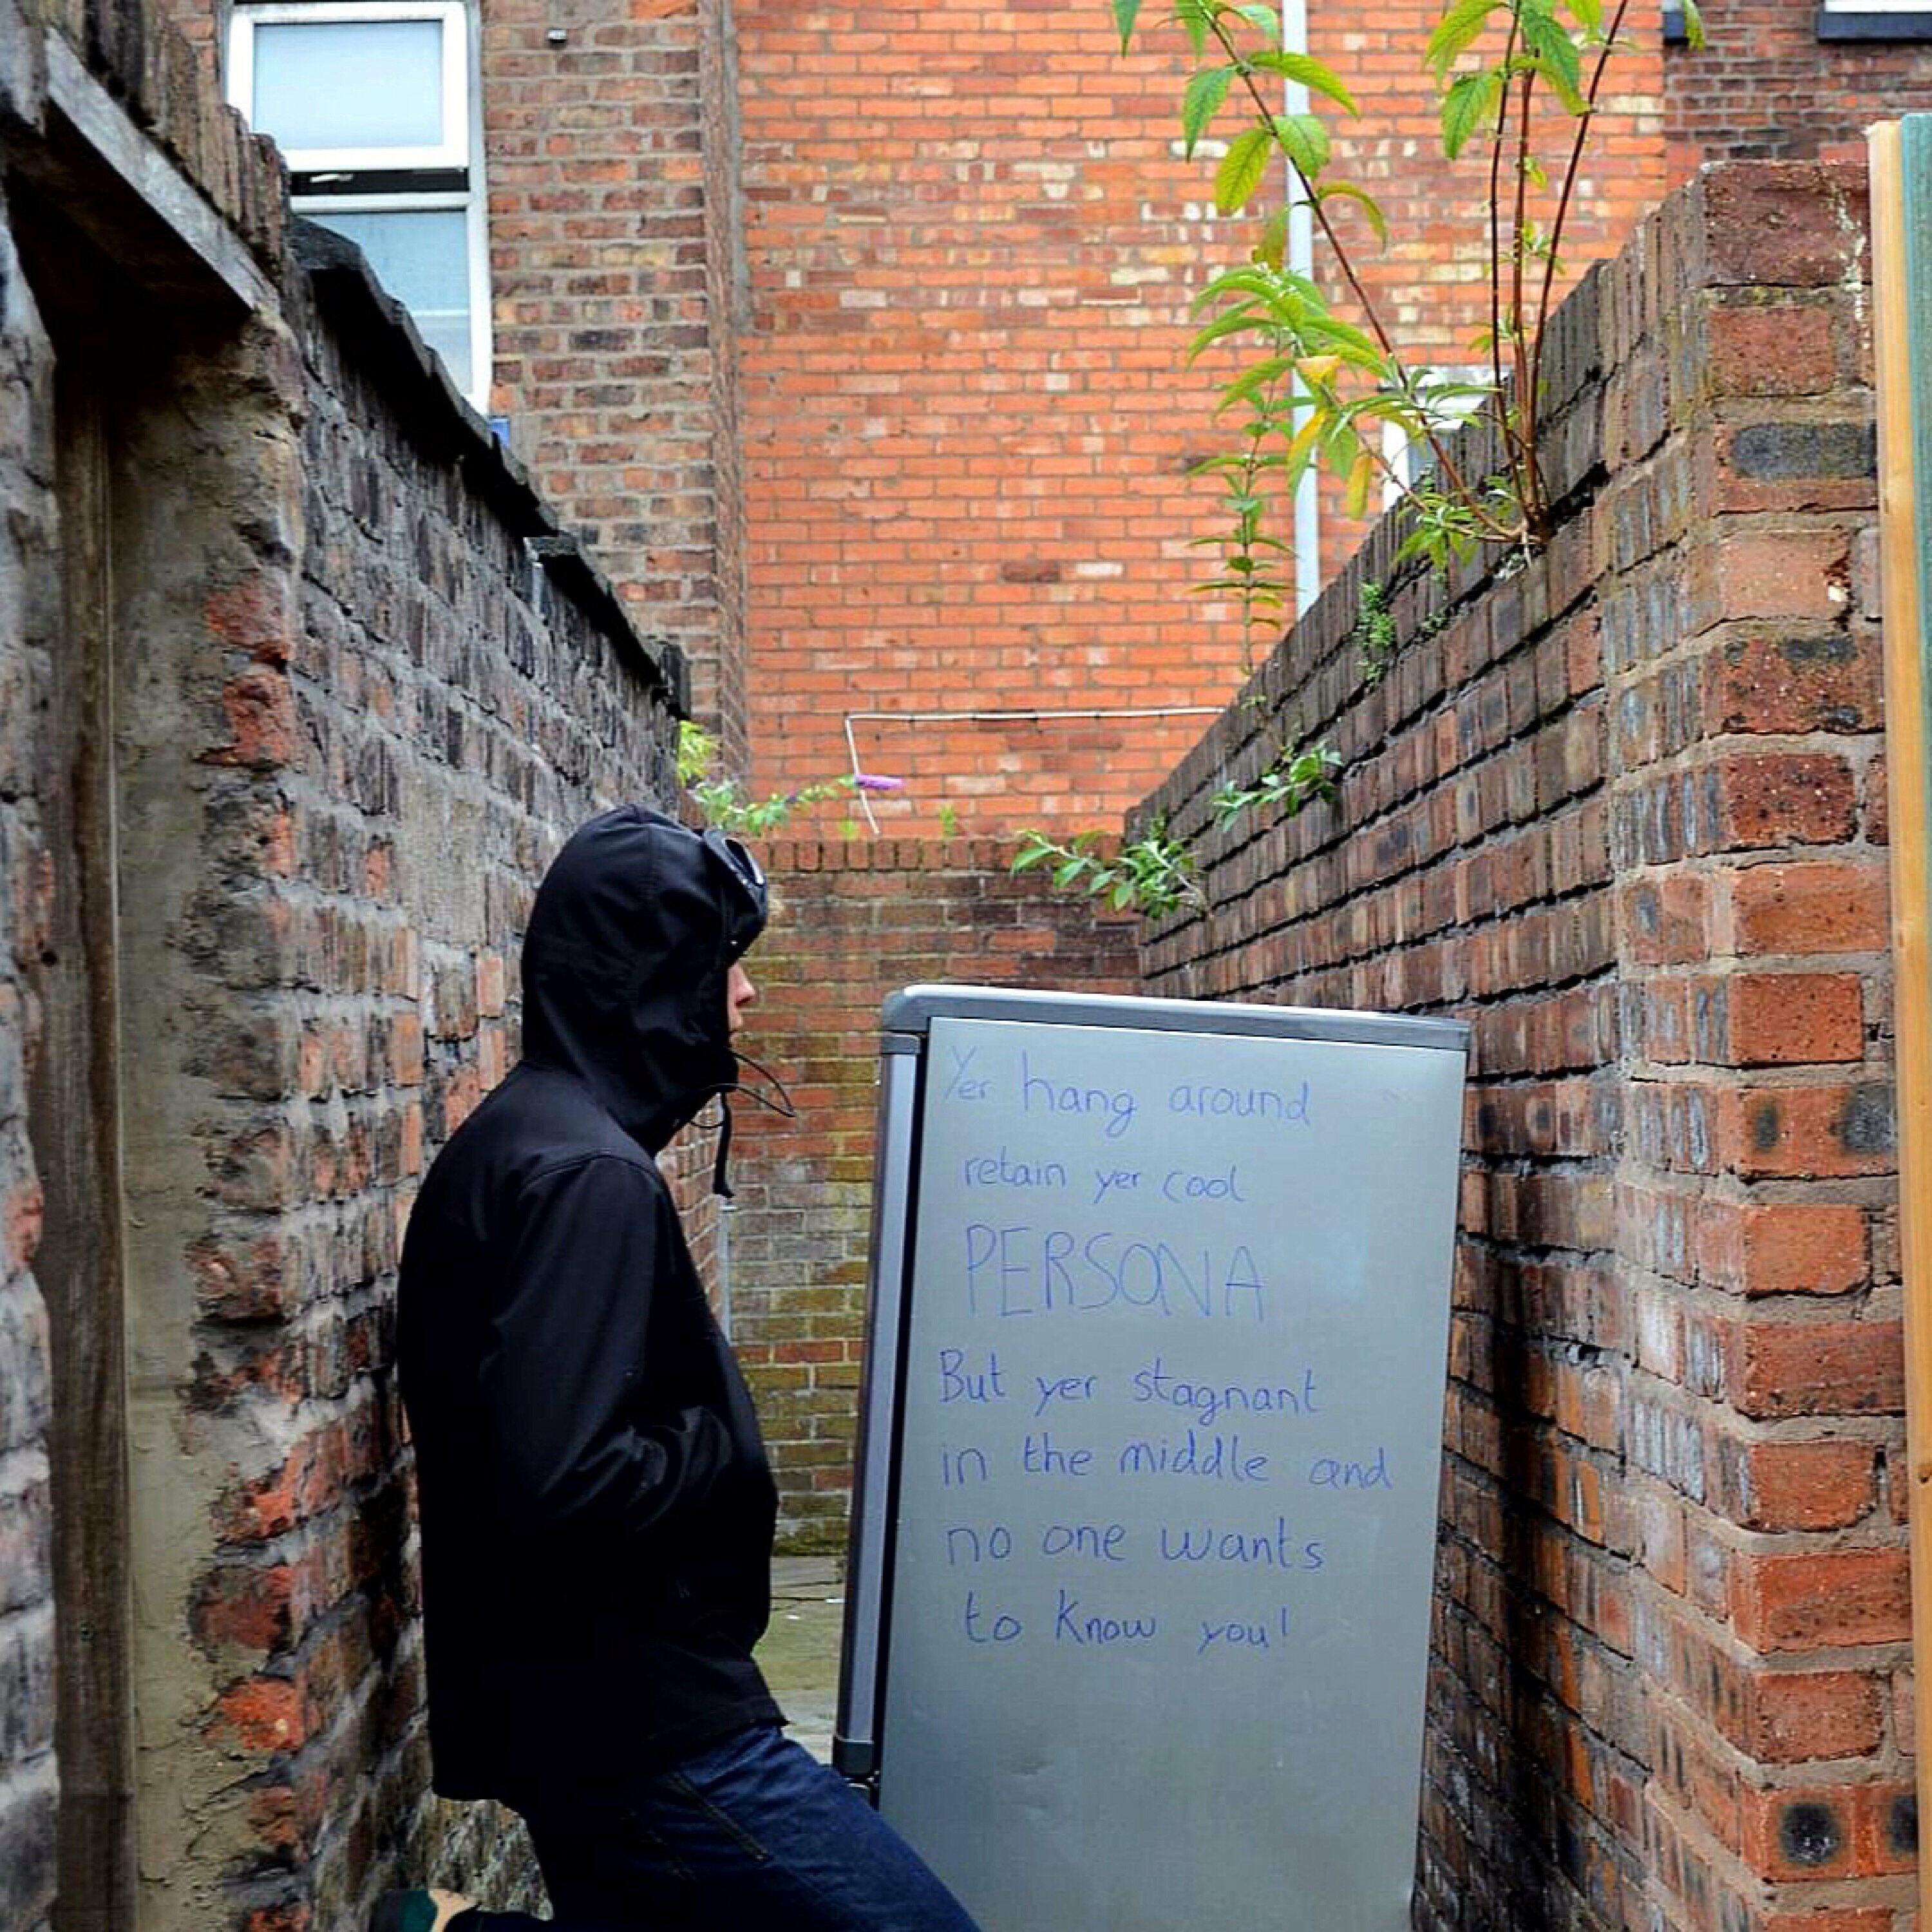 Yer hang around
retain yer cool
PERSONA
But yer stagnant
in the middle and
no one wants
to know you!